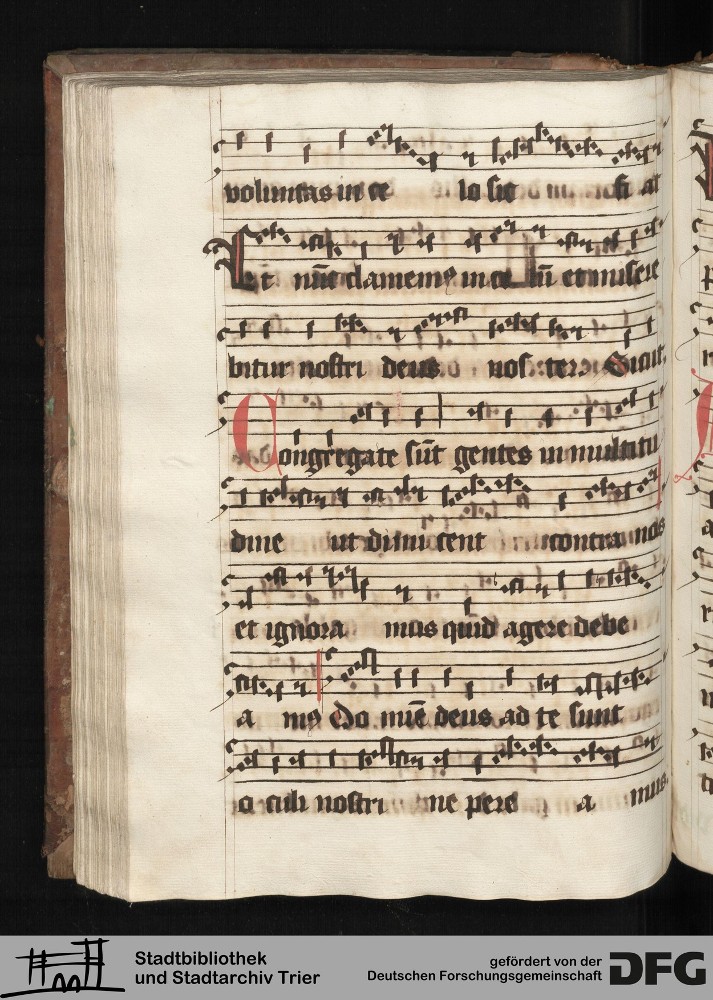 voluntas in ce lo sic fi at
Et nūc clamemꝰ in ce lū et misere
bitur nostri deus nos ter Sicut
Congregate sūt gentes in multitu
dine ut dimi cent contra nos
et ignora mus quid agere debe
a mꝰ Do mīe deus ad te sunt
o culi nostri ne pere a mus
Stadtbibliothek
und Stadtarchiv Trier
gefördert von der
Deutschen Forschungsgemeinschaft
DFG